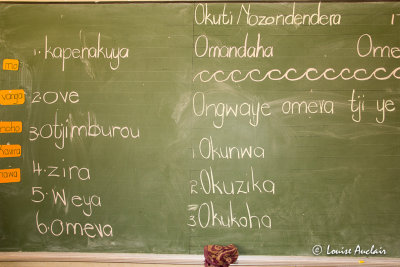 Okuti Nozondendera
Omandaha Ome
Orgwaye omeva tji ye
1. Okunwa
2. Okuzika
3 Okukoha
1. kapenakuya
2. ove
3. Otjimburou
4. zira
5. Weya
6. Omeva
© Louise Auclair